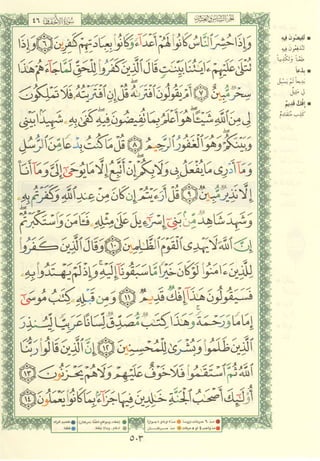 سورة الأحقاف ٤٦
وَإِذَا حُشِرَ النَّاسُ كَانُوا لَهُمْ أَعْدَاءً وَكَانُوا بِعِبَادَتِهِمْ كَافِرِينَ ٦ وَإِذَا
تُتْلَىٰ عَلَيْهِمْ آيَاتُنَا بَيِّنَاتٍ قَالَ الَّذِينَ كَفَرُوا لِلْحَقِّ لَمَّا جَاءَهُمْ هَٰذَا
سِحْرٌ مُّبِينٌ ٧ أَمْ يَقُولُونَ افْتَرَاهُ قُلْ إِنِ افْتَرَيْتُهُ فَلَا تَمْلِكُونَ
لِي مِنَ اللَّهِ شَيْئًا هُوَ أَعْلَمُ بِمَا تُفِيضُونَ فِيهِ كَفَىٰ بِهِ شَهِيدًا بَيْنِي
وَبَيْنَكُمْ وَهُوَ الْغَفُورُ الرَّحِيمُ ٨ قُلْ مَا كُنتُ بِدْعًا مِّنَ الرُّسُلِ
وَمَا أَدْرِي مَا يُفْعَلُ بِي وَلَا بِكُمْ إِنْ أَتَّبِعُ إِلَّا مَا يُوحَىٰ إِلَيَّ وَمَا أَنَا
إِلَّا نَذِيرٌ مُّبِينٌ ٩ قُلْ أَرَأَيْتُمْ إِن كَانَ مِنْ عِندِ اللَّهِ وَكَفَرْتُم بِهِ
وَشَهِدَ شَاهِدٌ مِّن بَنِي إِسْرَائِيلَ عَلَىٰ مِثْلِهِ فَآمَنَ وَاسْتَكْبَرْتُمْ
إِنَّ اللَّهَ لَا يَهْدِي الْقَوْمَ الظَّالِمِينَ ١٠ وَقَالَ الَّذِينَ كَفَرُوا
لِلَّذِينَ آمَنُوا لَوْ كَانَ خَيْرًا مَّا سَبَقُونَا إِلَيْهِ وَإِذْ لَمْ يَهْتَدُوا بِهِ
فَسَيَقُولُونَ هَٰذَا إِفْكٌ قَدِيمٌ ١١ وَمِن قَبْلِهِ كِتَابُ مُوسَىٰ
إِمَامًا وَرَحْمَةً وَهَٰذَا كِتَابٌ مُّصَدِّقٌ لِّسَانًا عَرَبِيًّا لِّيُنذِرَ
الَّذِينَ ظَلَمُوا وَبُشْرَىٰ لِلْمُحْسِنِينَ ١٢ إِنَّ الَّذِينَ قَالُوا رَبُّنَا
اللَّهُ ثُمَّ اسْتَقَامُوا فَلَا خَوْفٌ عَلَيْهِمْ وَلَا هُمْ يَحْزَنُونَ ١٣
أُولَٰئِكَ أَصْحَابُ الْجَنَّةِ خَالِدِينَ فِيهَا جَزَاءً بِمَا كَانُوا يَعْمَلُونَ ١٤
٥٠٣